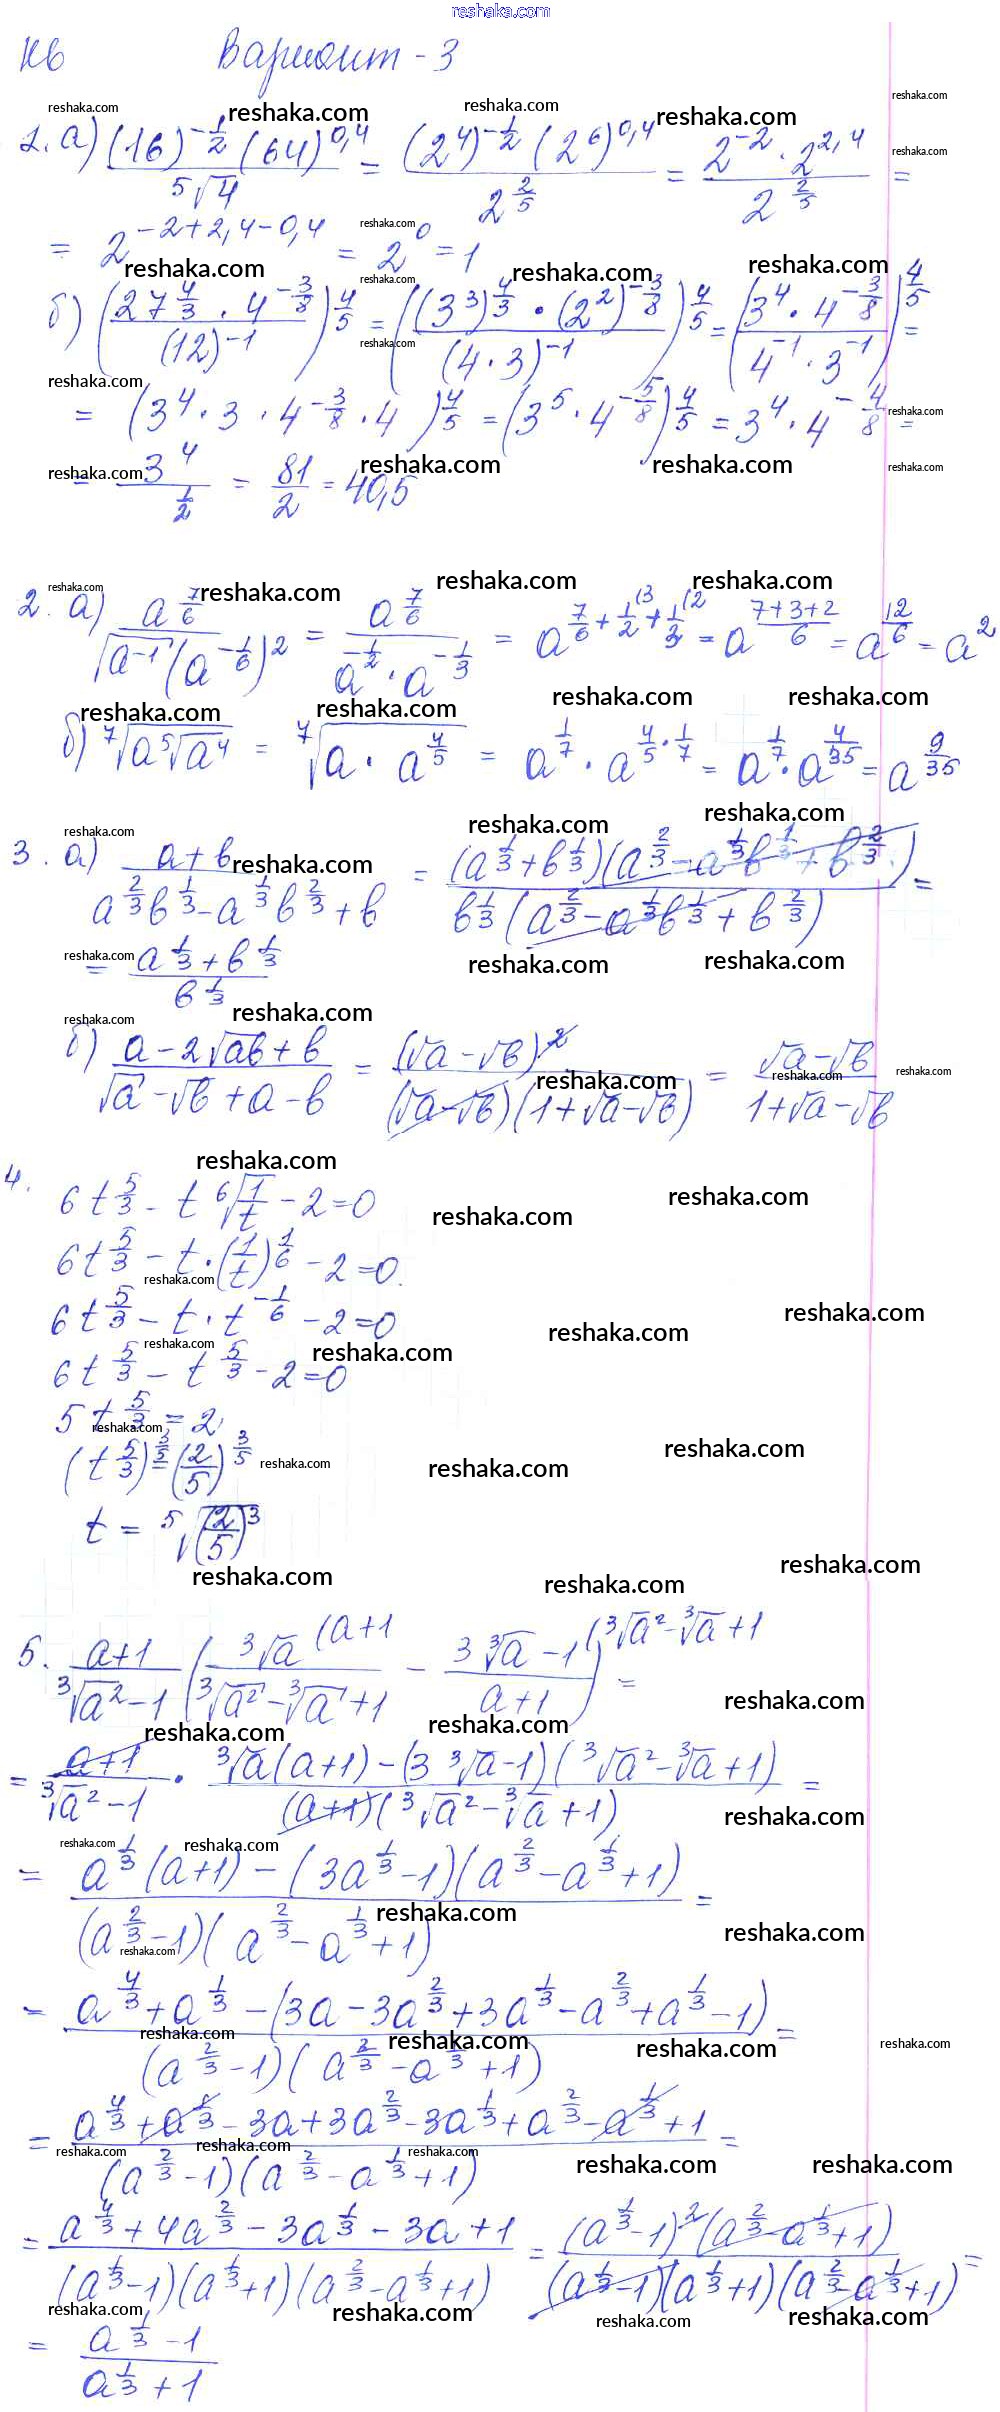 reshaka.com
К6 Вариант - 3
1. а) ((16)^(-1/2) (64)^(0,4)) / ⁵√4 = ((2^4)^(-1/2) (2^6)^(0,4)) / 2^(2/5) = (2^(-2) · 2^(2,4)) / 2^(2/5) =
= 2^(-2+2,4-0,4) = 2^0 = 1
б) ((27^(4/3) · 4^(-3/8)) / (12)^(-1))^(4/5) = (((3^3)^(4/3) · (2^2)^(-3/8)) / (4·3)^(-1))^(4/5) = ((3^4 · 4^(-3/8)) / (4^(-1) · 3^(-1)))^(4/5) =
= (3^4 · 3 · 4^(-3/8) · 4)^(4/5) = (3^5 · 4^(-5/8))^(4/5) = 3^4 · 4^(-4/8) =
= 3^4 / (1/2) = 81/2 = 40,5
2. а) a^(7/6) / (√(a^(-1)) (a^(-1/6))^2) = a^(7/6) / (a^(-1/2) · a^(-1/3)) = a^(7/6 + 1/2 (3 + 1/3 (2) = a^((7+3+2)/6) = a^(12/6) = a^2
б) ⁷√(a ⁵√(a^4)) = ⁷√(a · a^(4/5)) = a^(1/7) · a^(4/5 · 1/7) = a^(1/7) · a^(4/35) = a^(9/35)
3. а) (a+b) / (a^(2/3) b^(1/3) - a^(1/3) b^(2/3) + b) = ((a^(1/3) + b^(1/3))(a^(2/3) - a^(1/3) b^(1/3) + b^(2/3))) / (b^(1/3) (a^(2/3) - a^(1/3) b^(1/3) + b^(2/3))) =
= (a^(1/3) + b^(1/3)) / b^(1/3)
б) (a - 2√ab + b) / (√a - √b + a - b) = (√a - √b)^2 / ((√a - √b)(1 + √a - √b)) = (√a - √b) / (1 + √a - √b)
4.
6t^(5/3) - t ⁶√(1/t) - 2 = 0
6t^(5/3) - t · (1/t)^(1/6) - 2 = 0.
6t^(5/3) - t · t^(-1/6) - 2 = 0
6t^(5/3) - t^(5/3) - 2 = 0
5t^(5/3) = 2
(t^(5/3))^(3/5) = (2/5)^(3/5)
t = ⁵√((2/5)^3)
5. (a+1) / (³√a² - 1) (³√a (a+1 / (³√a² - ³√a + 1) - (3 ³√a - 1) (³√a² - ³√a + 1 / (a+1)) =
= (a+1) / (³√a² - 1) · (³√a (a+1) - (3 ³√a - 1)(³√a² - ³√a + 1)) / ((a+1)(³√a² - ³√a + 1)) =
= (a^(1/3) (a+1) - (3a^(1/3) - 1)(a^(2/3) - a^(1/3) + 1)) / ((a^(2/3) - 1)(a^(2/3) - a^(1/3) + 1)) =
= (a^(4/3) + a^(1/3) - (3a - 3a^(2/3) + 3a^(1/3) - a^(2/3) + a^(1/3) - 1)) / ((a^(2/3) - 1)(a^(2/3) - a^(1/3) + 1)) =
= (a^(4/3) + a^(1/3) - 3a + 3a^(2/3) - 3a^(1/3) + a^(2/3) - a^(1/3) + 1) / ((a^(2/3) - 1)(a^(2/3) - a^(1/3) + 1)) =
= (a^(4/3) + 4a^(2/3) - 3a^(1/3) - 3a + 1) / ((a^(1/3) - 1)(a^(1/3) + 1)(a^(2/3) - a^(1/3) + 1)) = ((a^(1/3) - 1)^2 (a^(2/3) - a^(1/3) + 1)) / ((a^(1/3) - 1)(a^(1/3) + 1)(a^(2/3) - a^(1/3) + 1)) =
= (a^(1/3) - 1) / (a^(1/3) + 1)